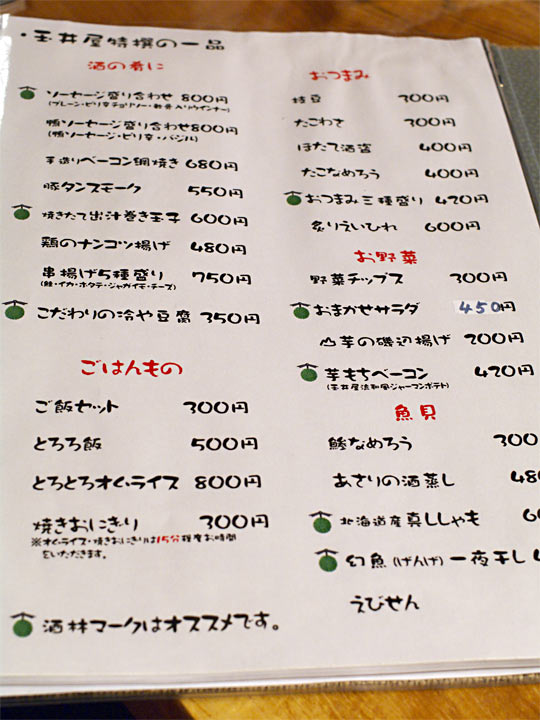 ・玉井屋特撰の一品
酒の肴に
ソーセージ盛り合わせ 800円
鴨ソーセージ盛り合わせ 800円
(鴨ソーセージ・ピリ辛・バジル)
手造りベーコン網焼き 680円
豚タンスモーク 550円
焼きたて出汁巻き玉子 600円
鶏のナンコツ揚げ 480円
串揚げ5種盛り 750円
(鮭・イカ・ホタテ・ジャガイモ・チーズ)
こだわりの冷や豆腐 350円
ごはんもの
ご飯セット 300円
とろろ飯 500円
とろとろオムライス 800円
焼きおにぎり 300円
※オムライス・焼きおにぎりは15分程度お時間
をいただきます。
酒林マークはオススメです。
おつまみ
枝豆 300円
たこわさ 300円
ほたて酒盗 400円
たこなめろう 400円
おつまみ三種盛り 420円
炙りえいひれ 600円
お野菜
野菜チップス 300円
おまかせサラダ 450円
山芋の磯辺揚げ 200円
芋もちベーコン 420円
(玉井屋流和風ジャーマンポテト)
魚貝
鯵なめろう 300
あさりの酒蒸し 48
北海道産真ししゃも 6
幻魚(げんげ)一夜干し 4
えびせん